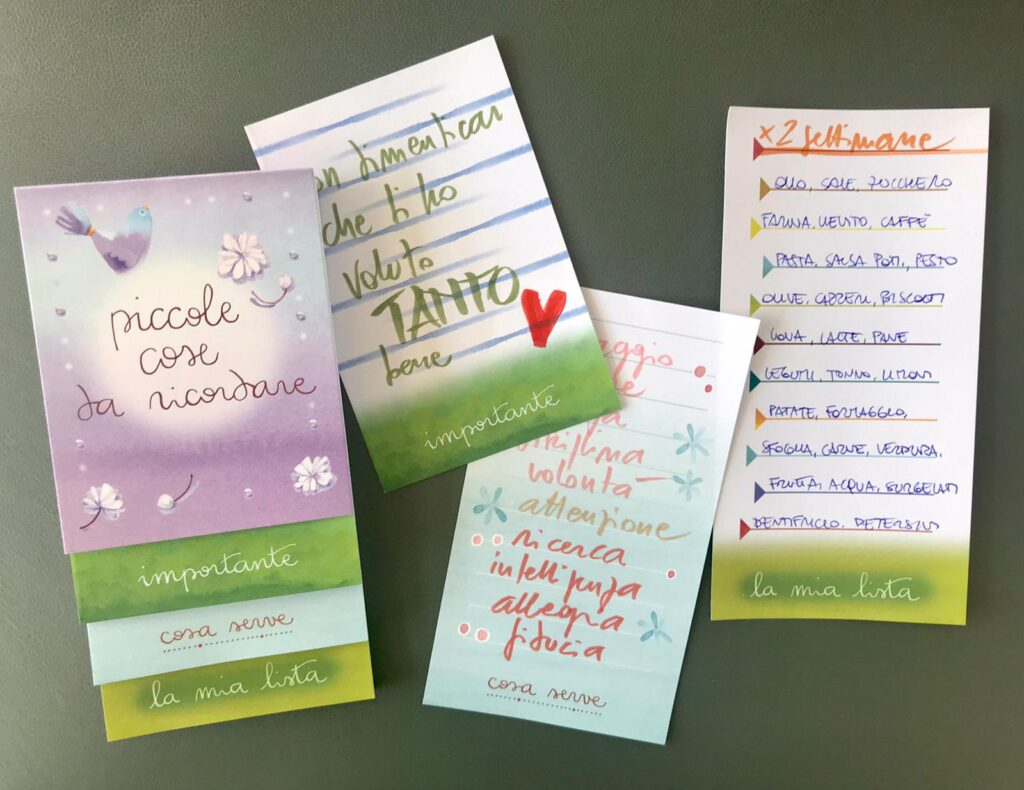 piccole
cose
da ricordare
importante
cosa serve
la mia lista
non dimenticar
che ti ho
voluto
TANTO
bene
importante
volontà
attenzione
ricerca
intelligenza
allegria
fiducia
cosa serve
x2 settimane
OLIO, SALE, ZUCCHERO
FARINA, LIEVITO, CAFFÈ
PASTA, SALSA POM, PESTO
OLIVE, CAPPERI, BISCOTTI
UOVA, LATTE, PANE
LEGUMI, TONNO, LIMONI
PATATE, FORMAGGIO,
SFOGLIA, CARNE, VERDURA,
FRUTTA, ACQUA, SURGELATI
DENTIFRICIO, DETERSIVI
la mia lista